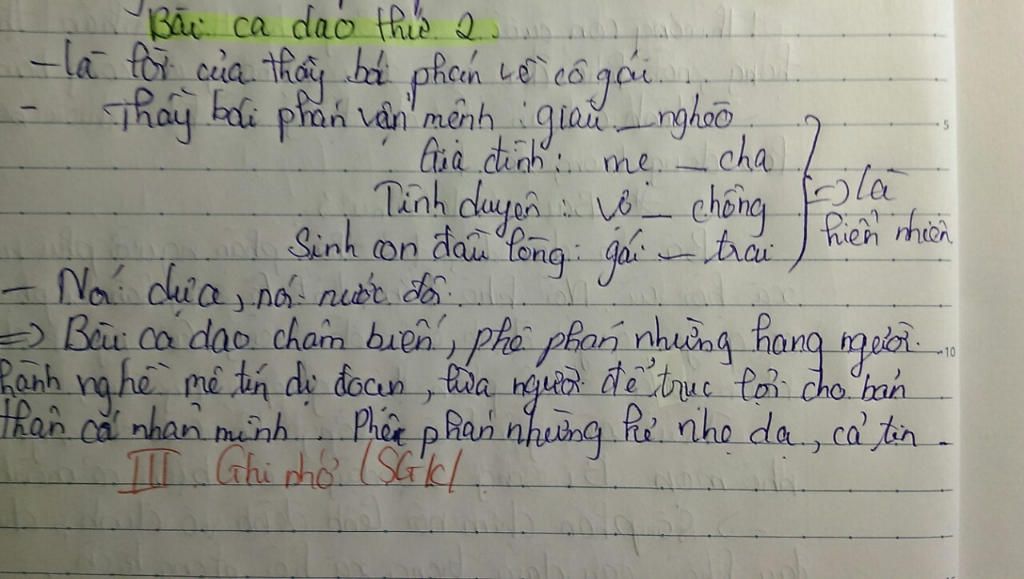 Bài ca dao thứ 2.
- là lời của thầy bói phán về cô gái.
- Thầy bói phán vận mệnh: giàu - nghèo
Gia đình: mẹ - cha
Tình duyên: vợ - chồng
Sinh con đầu lòng: gái - trai
=> là hiển nhiên
- Nói dựa, nói nước đôi.
=> Bài ca dao châm biến, phê phán những hạng người
hành nghề mê tín dị đoan, lừa người để trục lợi cho bản
thân cá nhân mình. Phê phán những kẻ nhẹ dạ, cả tin.
III Ghi nhớ (SGK)